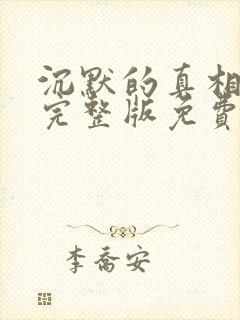 沉默的真相
完整版免費
李喬安